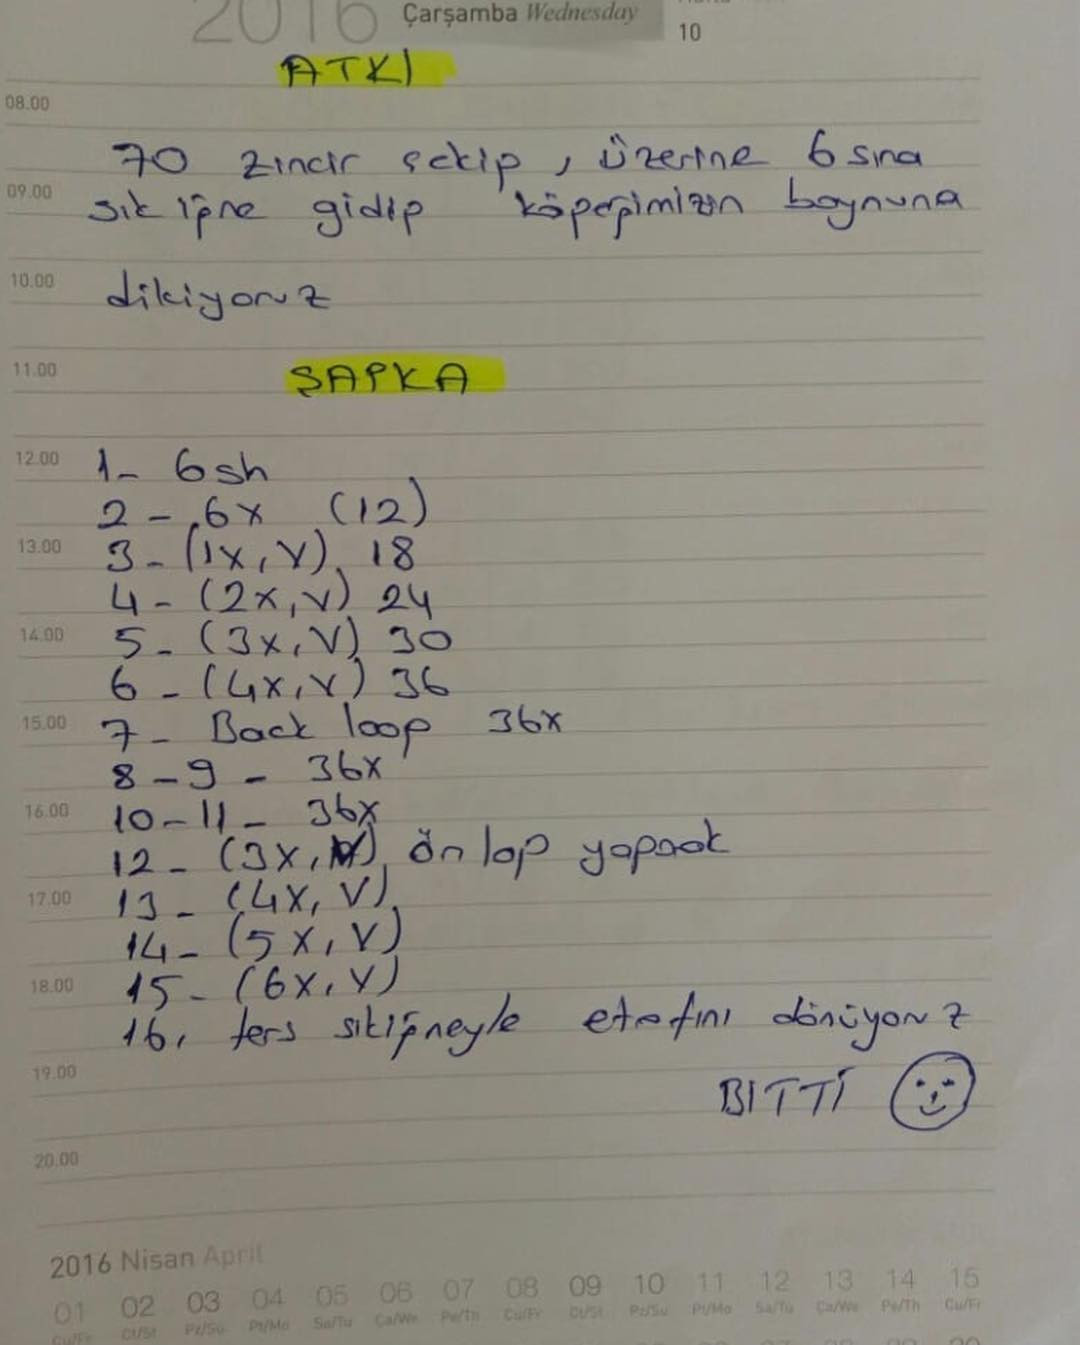 2016 Çarşamba Wednesday
10
ATKI
08.00
70 zincir çekip, üzerine 6 sıra
09.00
sık iğne gidip köpeğimizin boynuna
10.00
dikiyoruz
11.00
ŞAPKA
12.00
1- 6sh
2 - 6x (12)
13.00
3 - (1x, V) 18
4 - (2x, V) 24
14.00
5 - (3x, V) 30
6 - (4x, V) 36
15.00
7 - Back loop 36x
8 - 9 - 36x
16.00
10 - 11 - 36x
12 - (3x, V) ön lop yaparak
17.00
13 - (4x, V)
14 - (5x, V)
18.00
15 - (6x, V)
16, ters sıkiğneyle etrafını dönüyoruz
19.00
BITTİ
20.00
2016 Nisan April
01 02 03 04 05 06 07 08 09 10 11 12 13 14 15
Cu/Fr Ct/St Pz/Su Pt/Mo Sa/Tu Ça/We Pe/Th Cu/Fr Ct/St Pz/Su Pt/Mo Sa/Tu Ça/We Pe/Th Cu/Fr